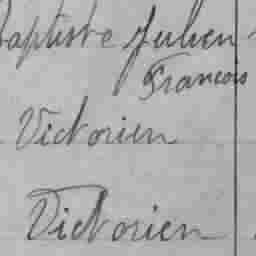 Baptiste Julien
Francois
Victorien
Victorien